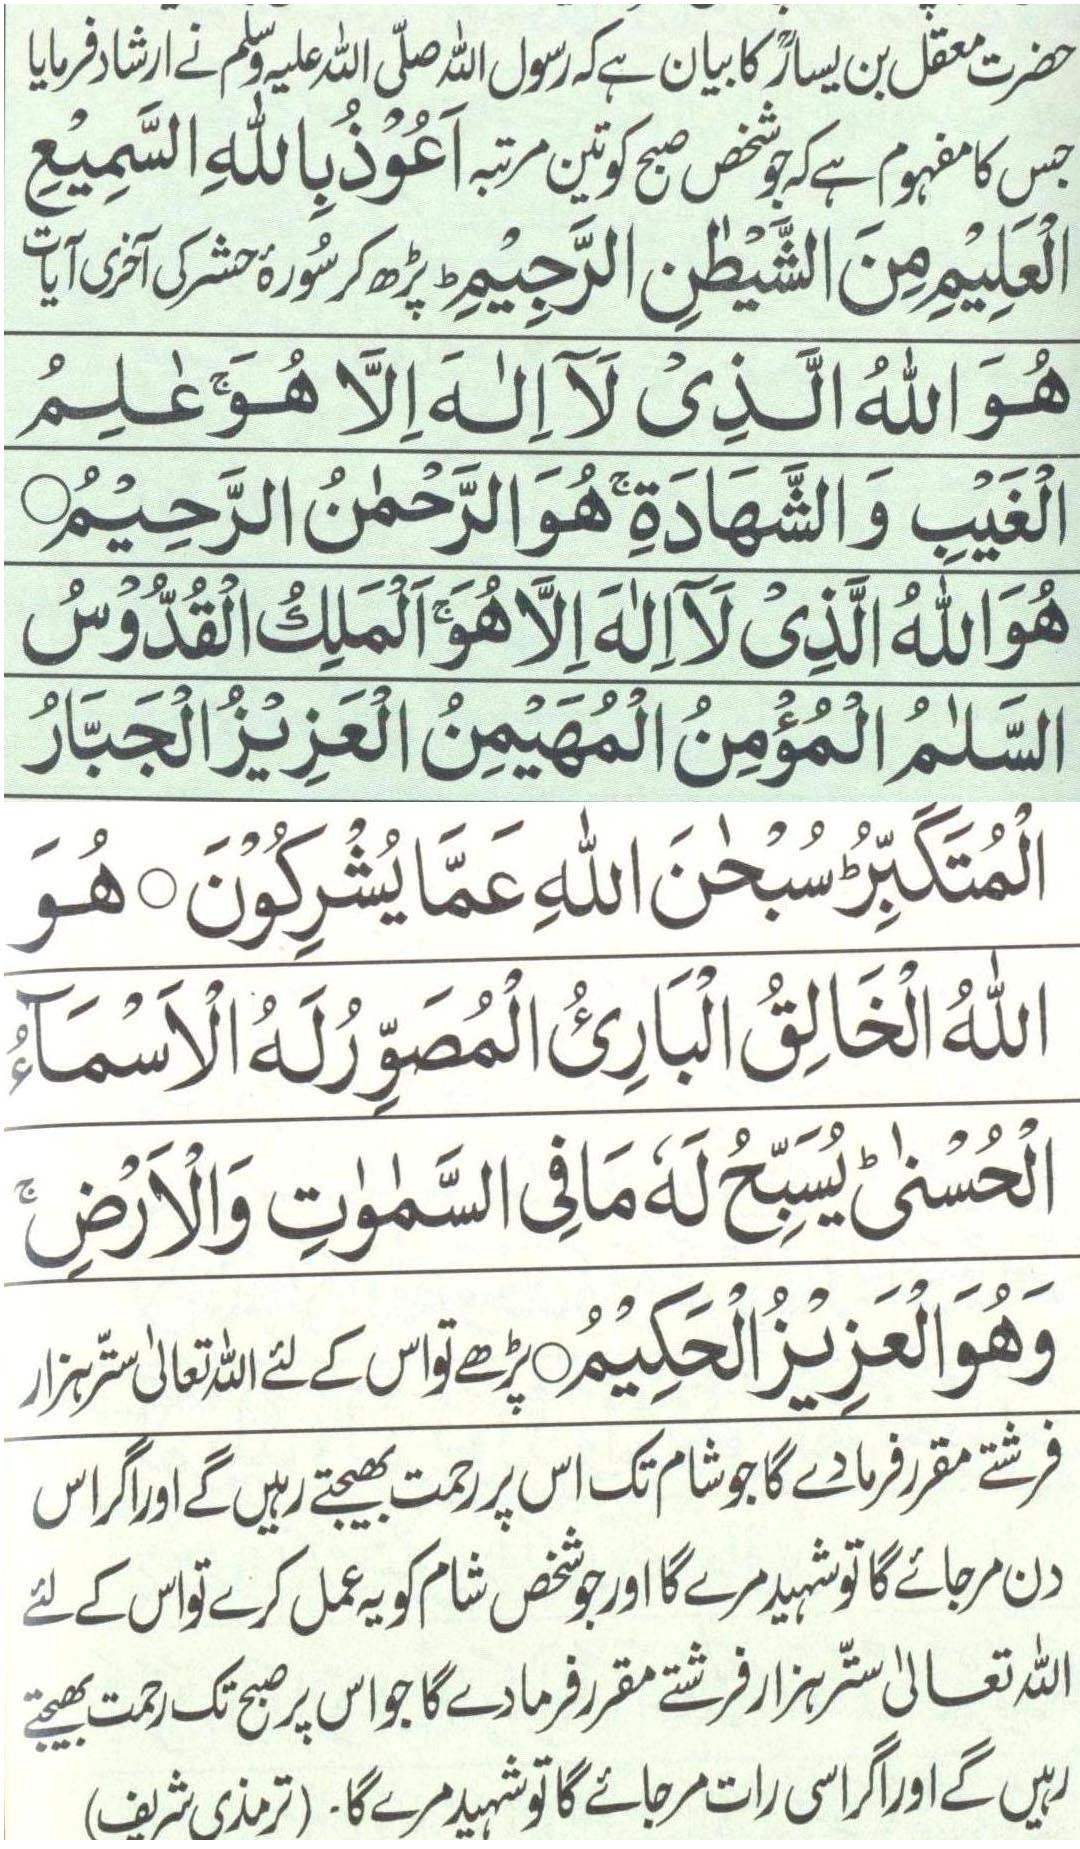 حضرت معقل بن یسارؓ کا بیان ہے کہ رسول اللہ صلّی اللہ علیہ وسلم نے ارشاد فرمایا
جس کا مفہوم ہے کہ جو شخص صبح کو تین مرتبہ اَعُوْذُ بِاللّٰهِ السَّمِیْعِ
الْعَلِیْمِ مِنَ الشَّیْطٰنِ الرَّجِیْمِ ط پڑھ کر سُورۂ حشر کی آخری آیات
هُوَ اللّٰهُ الَّذِیْ لَآ اِلٰهَ اِلَّا هُوَ ۚ عٰلِمُ
الْغَیْبِ وَ الشَّهَادَةِ ۚ هُوَ الرَّحْمٰنُ الرَّحِیْمُ ○
هُوَ اللّٰهُ الَّذِیْ لَآ اِلٰهَ اِلَّا هُوَ ۚ اَلْمَلِكُ الْقُدُّوْسُ
السَّلٰمُ الْمُؤْمِنُ الْمُهَیْمِنُ الْعَزِیْزُ الْجَبَّارُ
الْمُتَكَبِّرُ ؕ سُبْحٰنَ اللّٰهِ عَمَّا یُشْرِكُوْنَ ○ هُوَ
اللّٰهُ الْخَالِقُ الْبَارِئُ الْمُصَوِّرُ لَهُ الْاَسْمَآءُ
الْحُسْنٰی ؕ یُسَبِّحُ لَهٗ مَا فِی السَّمٰوٰتِ وَالْاَرْضِ ۚ
وَهُوَ الْعَزِیْزُ الْحَكِیْمُ ○ پڑھے تو اس کے لئے اللہ تعالیٰ ستّر ہزار
فرشتے مقرر فرما دے گا جو شام تک اس پر رحمت بھیجتے رہیں گے اور اگر اس
دن مر جائے گا تو شہید مرے گا اور جو شخص شام کو یہ عمل کرے تو اس کے لئے
اللہ تعالیٰ ستّر ہزار فرشتے مقرر فرما دے گا جو اس پر صبح تک رحمت بھیجتے
رہیں گے اور اگر اسی رات مر جائے گا تو شہید مرے گا۔ (ترمذی شریف)